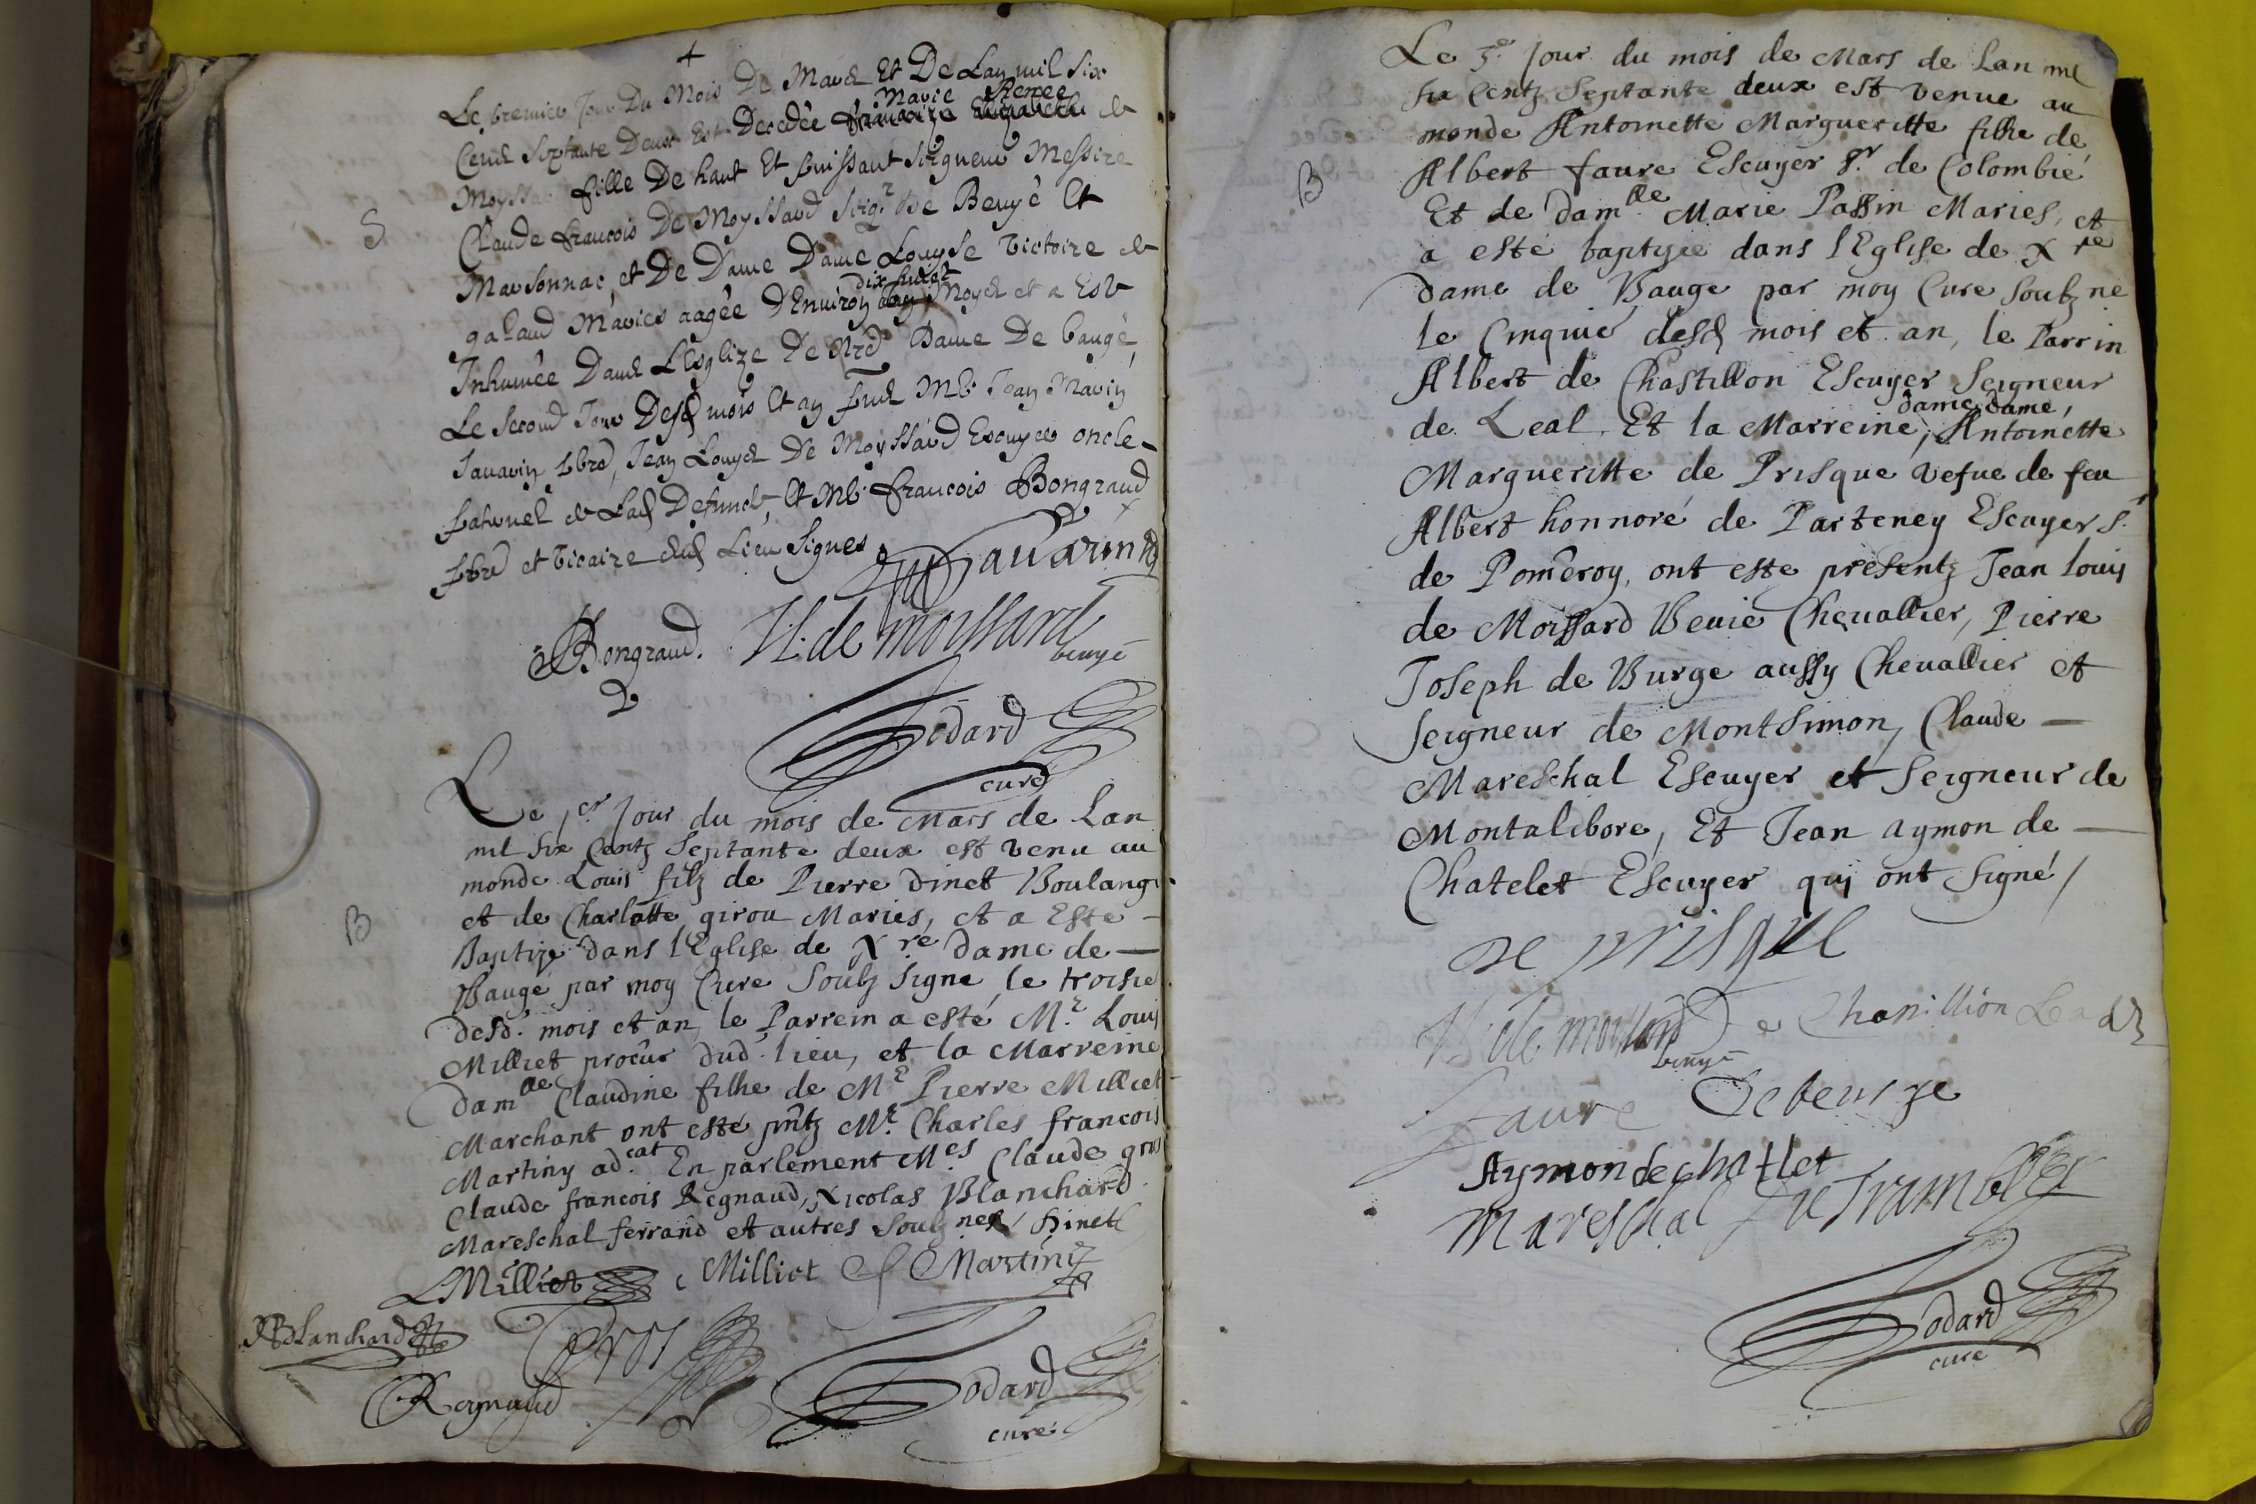 Le premier Jour Du Mois De Mars Et De Lan mil Six
Marie Renee
Cens Septante Deux Est Decedée françoize de
Moyssa fille De haut Et puissant Seigneur Messire
S
Claude francois De Moyssard Seigr De Beuyé Et
Marsonnac, et De Dame Dame Louyse Victoire de
dix huict
galand Mariés aagée D'Environ Moys et a Est
Inhumée Dans L'Esglize De Nre Dame De baugé
Le Second Jour Desd mois Et an prns Mre Jean Marin
Javarin pbre, Jean Louys De Moyssard Escuyer oncle
paternel de Lad Defuncte, Et Mre francois Bongraud
pbre et vicaire dud Lieu Signes
Javarin
Bongraud. JL. de moissard
beuyé
Godard
curé
Le per Jour du mois de Mars de Lan
mil six Centz Septante deux est venu au
monde Louis filz de Pierre dinet Boulangr
et de Charlotte girou Mariés, et a Esté
B
Baptizé dans l'Eglise de Nre dame de
Baugé par moy Cure Soubz Signe le troisie
desd. mois et an, le Parrein a esté Mr. Louis
Milliet procur dud. lieu, et la Marreine
damlle Claudine filhe de Mr Pierre Milliet
Marchant ont esté pntz Mr. Charles francois
Martiny adcat En parlement Mes Claude gros
Claude francois Regnaud, Nicolas Blanchard
Mareschal ferrand et autres Soubznes Dinet
LMilliet C Milliet Martiny
NBlanchard
Gros
Regnaud
Godard
curé
Le 3e Jour du mois de Mars de Lan mil
six Centz Septante deux est venue au
monde Antoinette Margueritte filhe de
B
Albert faure Escuyer Sr. de Colombié
Et de damlle Marie Passin Maries, et
a esté baptisée dans l'Eglise de Nre
dame de Bauge par moy Cure Soubz ne
le Cinquie desd mois et an, le Parrin
Albert de Chastillon Escuyer Seigneur
dame dame,
de Leal, Et la Marreine, Antoinette
Margueritte de Prisque vefue de feu
Albert honnoré de Parteney Escuyer Sr.
de Pomeroy, ont este presentz Jean Louis
de Moissard Beuié Chevallier, Pierre
Joseph de Burge aussy Chevallier et
Seigneur de Montsimon, Claude
Mareschal Escuyer et Seigneur de
Montalibore, Et Jean Aymon de
Chatelet Escuyer qui ont signé /
de prisque
de moissard De Chanillion
beuyé
faure De beurge
Aymon de chatlet
Mareschal
Godard
curé